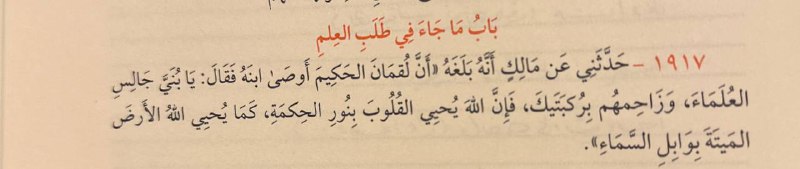 بَابُ مَا جَاءَ فِي طَلَبِ العِلمِ
١٩١٧ - حَدَّثَنِي عَن مَالِكٍ أَنَّهُ بَلَغَهُ «أَنَّ لُقمَانَ الحَكِيمَ أَوصَىٰ ابنَهُ فَقَالَ: يَا بُنَيَّ جَالِسِ
العُلَمَاءَ، وَزَاحِمهُم بِرُكبَتَيكَ، فَإِنَّ اللهَ يُحيِي القُلُوبَ بِنُورِ الحِكمَةِ، كَمَا يُحيِي اللهُ الأَرضَ
المَيتَةَ بِوَابِلِ السَّمَاءِ».